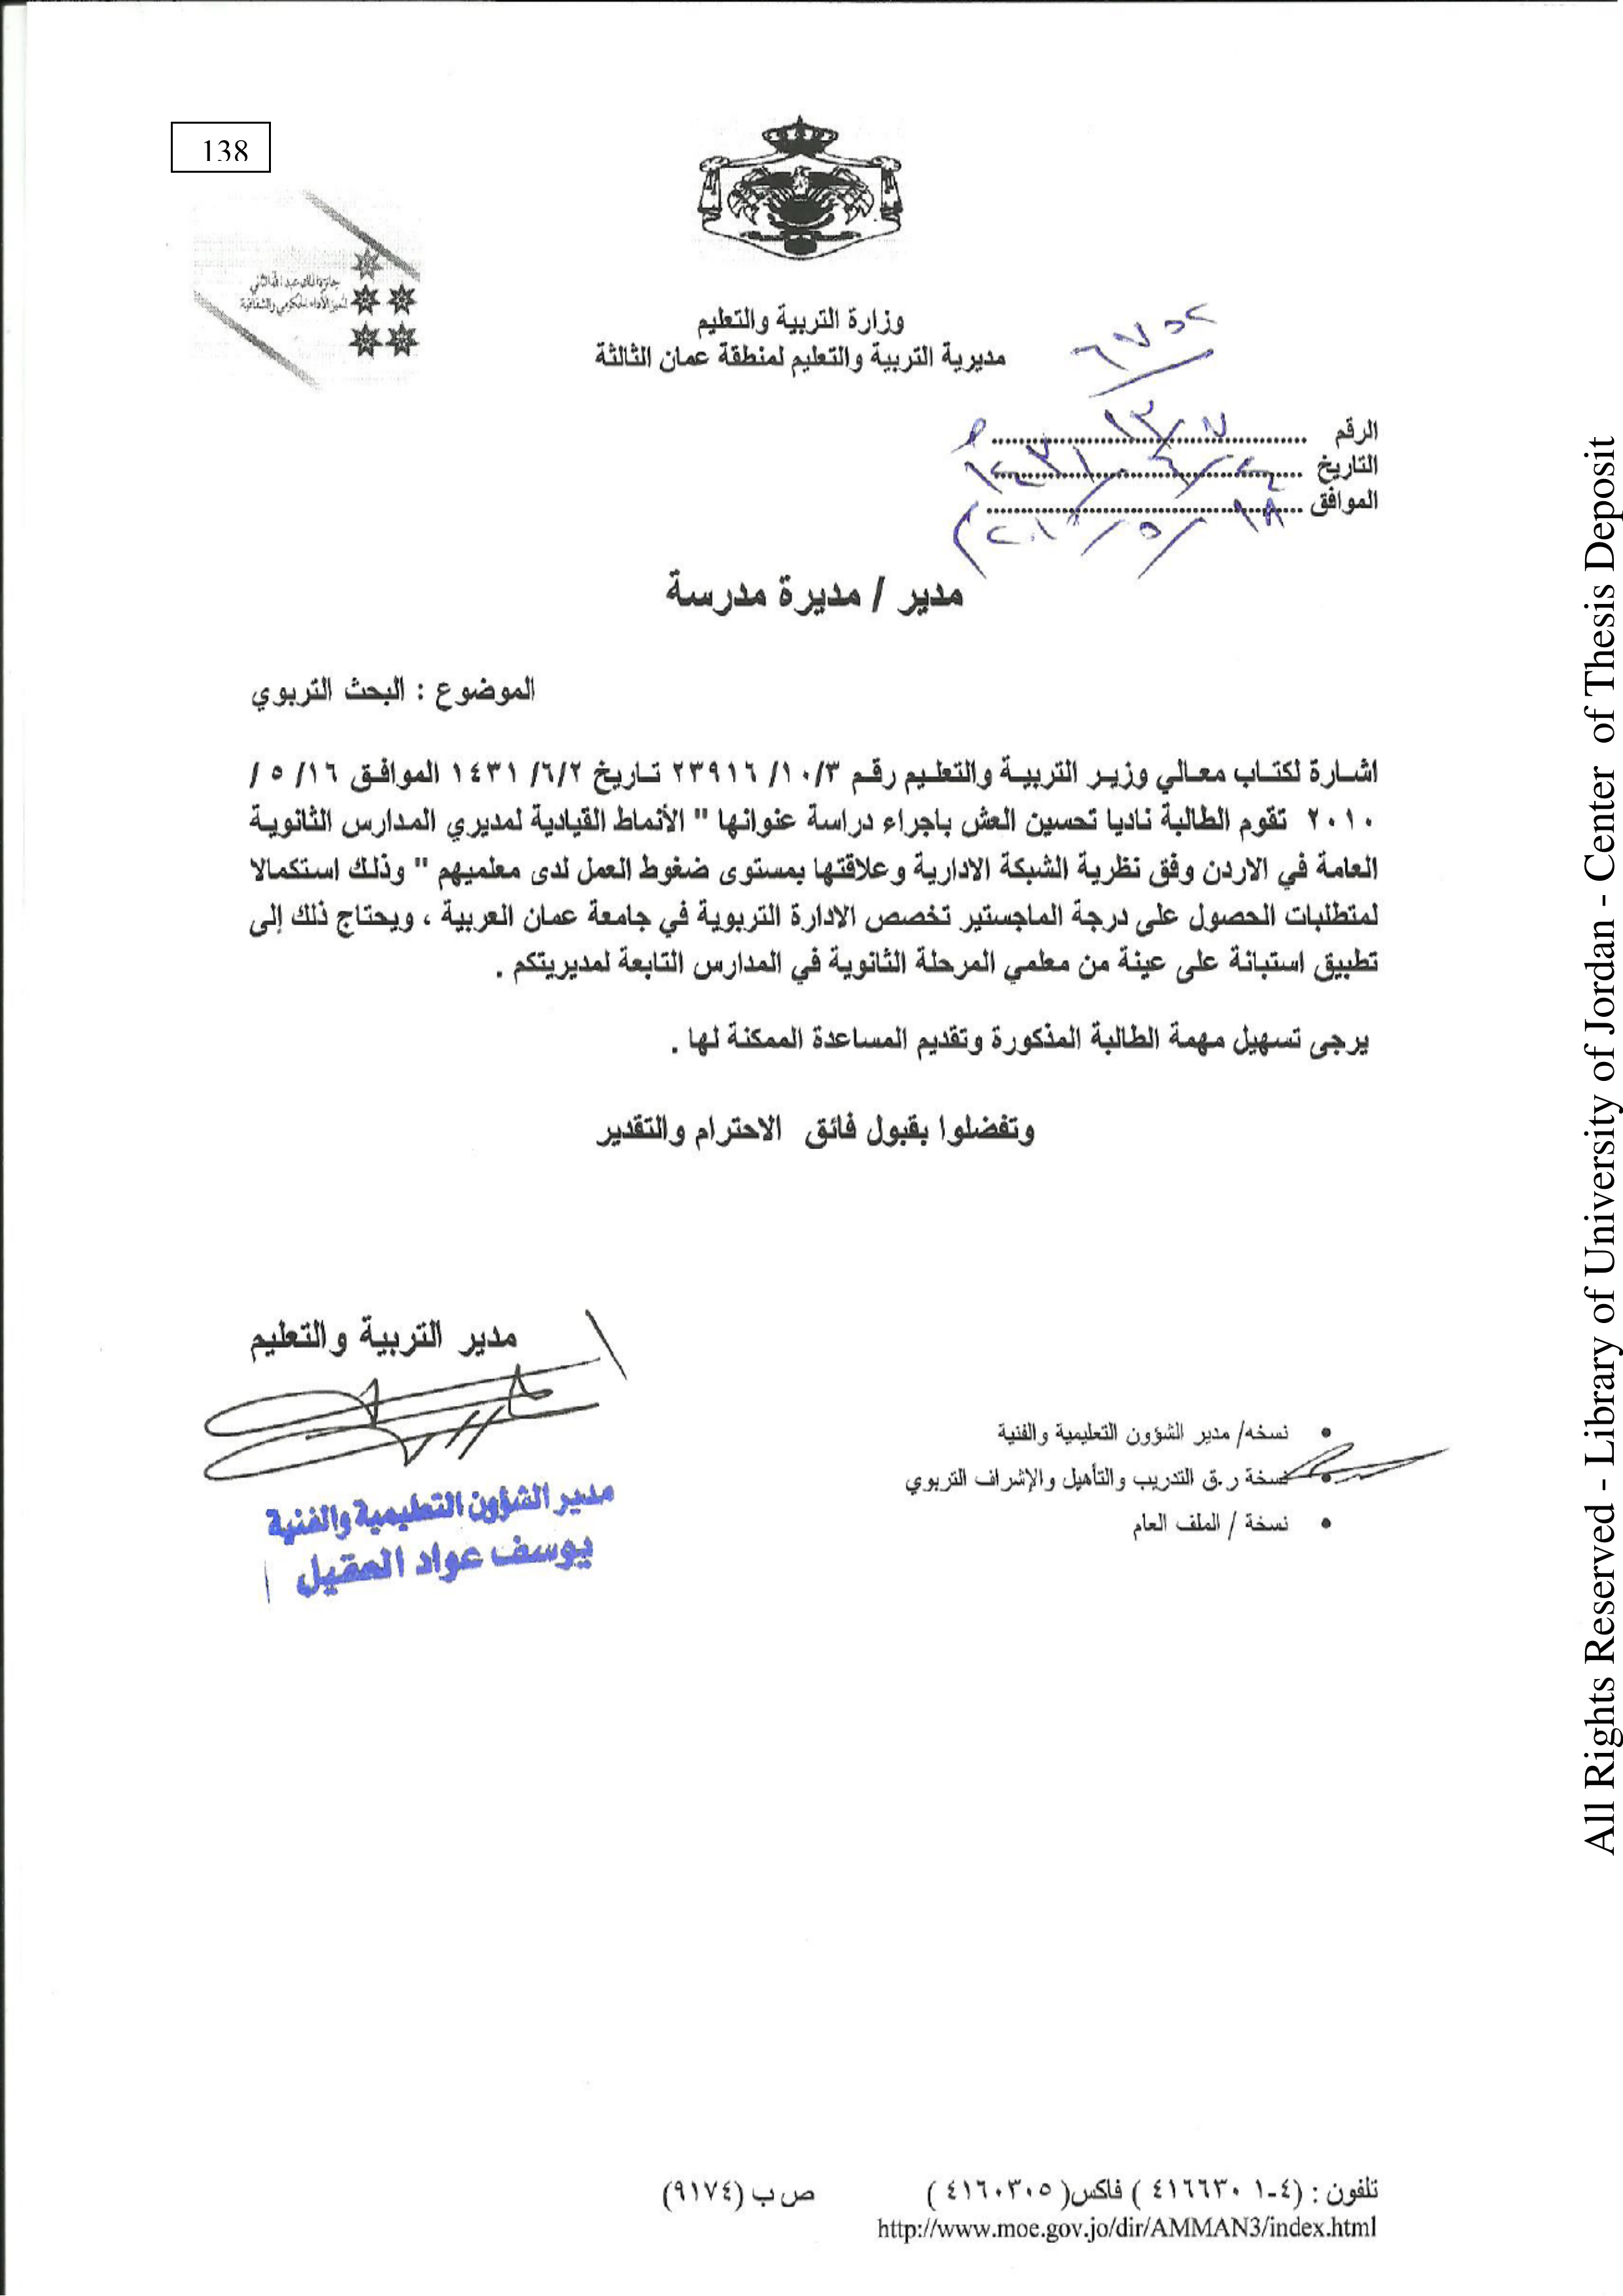 138
جائزة الملك عبد الله الثاني
لتميز الأداء الحكومي والشفافية
وزارة التربية والتعليم
مديرية التربية والتعليم لمنطقة عمان الثالثة
٦٧٥٢
الرقم ١٣/٧
التاريخ
الموافق ١٨/٥/٢٠١٠
مدير / مديرة مدرسة
الموضوع : البحث التربوي
اشارة لكتاب معالي وزير التربية والتعليم رقم ١٠/٣/ ٢٣٩١٦ تاريخ ٦/٢/ ١٤٣١ الموافق ١٦/ ٥ /
٢٠١٠ تقوم الطالبة ناديا تحسين العش باجراء دراسة عنوانها " الأنماط القيادية لمديري المدارس الثانوية
العامة في الاردن وفق نظرية الشبكة الادارية وعلاقتها بمستوى ضغوط العمل لدى معلميهم " وذلك استكمالا
لمتطلبات الحصول على درجة الماجستير تخصص الادارة التربوية في جامعة عمان العربية ، ويحتاج ذلك إلى
تطبيق استبانة على عينة من معلمي المرحلة الثانوية في المدارس التابعة لمديريتكم .
يرجى تسهيل مهمة الطالبة المذكورة وتقديم المساعدة الممكنة لها .
وتفضلوا بقبول فائق الاحترام والتقدير
مدير التربية والتعليم
مدير الشؤون التعليمية والفنية
يوسف عواد العقيل
• نسخه/ مدير الشؤون التعليمية والفنية
• نسخة ر.ق التدريب والتأهيل والإشراف التربوي
• نسخة / الملف العام
تلفون : (٤-١ ٤١٦٦٣٠ ) فاكس( ٤١٦٠٣٠٥ ) ص ب (٩١٧٤)
http://www.moe.gov.jo/dir/AMMAN3/index.html
All Rights Reserved - Library of University of Jordan - Center of Thesis Deposit